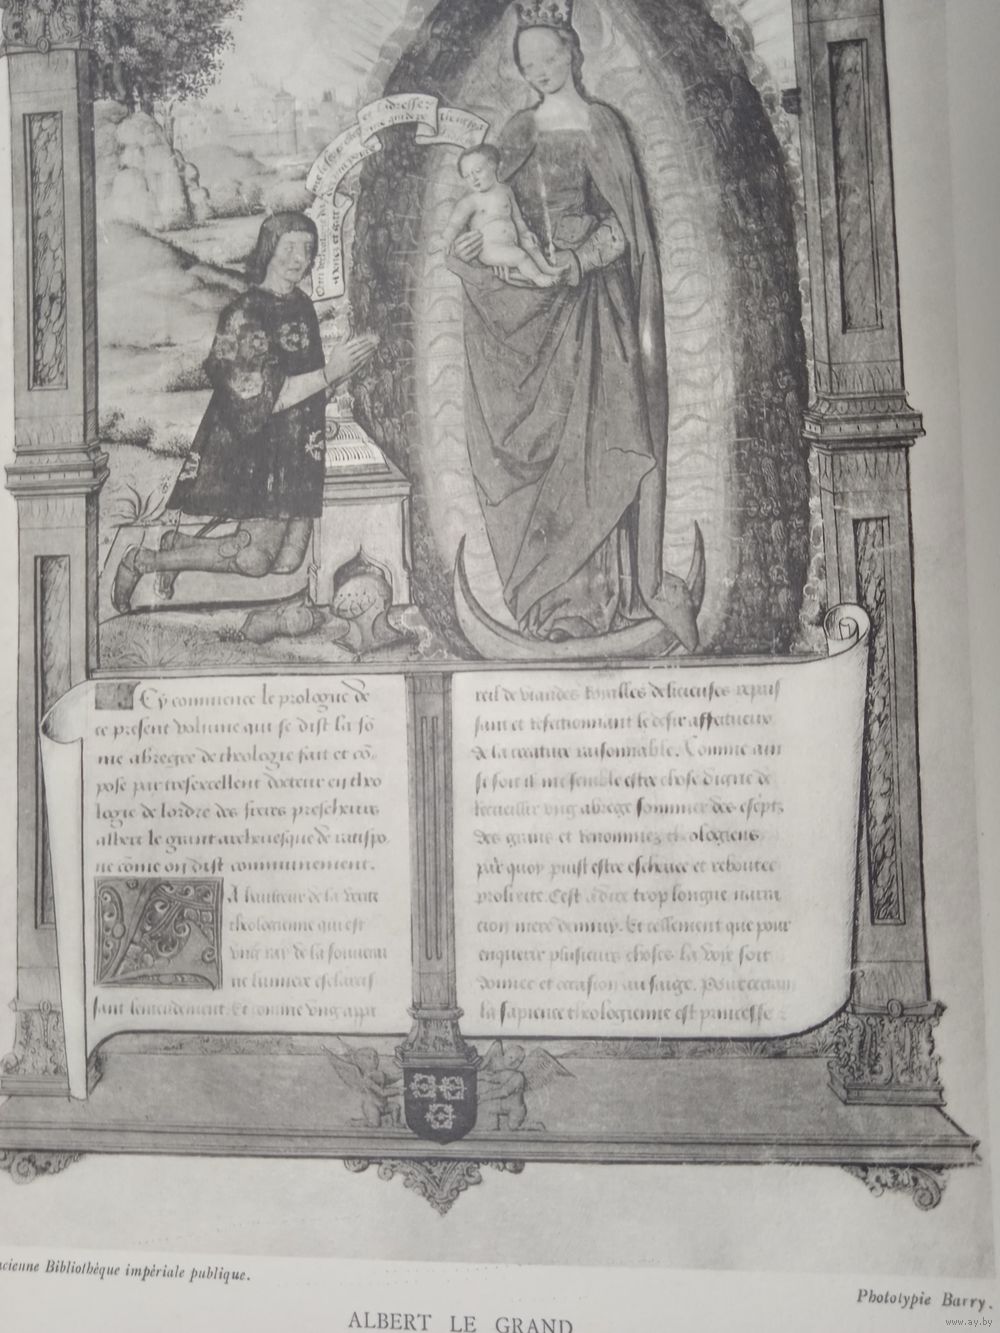 et adresse
Cy commence le prologue de
ce present volume qui se dist la so
me abregee de theologie fait et co
pose par tresexcellent docteur en theo
logie de lordre des freres prescheurs
albert le grant archeuesque de ratispo
ne come on dist communement.
La hauteur de la verite
theologienne qui est
vng ray de la souuerai
ne lumiere esclarcis
sant lentendement. Et comme vng appe
reil de viandes tresbelles delicieuses repais
sant et refectionnant le desir affectueux
de la creature raisonnable. Comme ain
si soit il me semble estre chose digne de
recueillir vng abrege sommier des escriptz
des grans et renommez theologiens
par quoy puist estre escheuee et reboutee
prolixite. Cest a dire trop longue narra
cion mere dennuy. Et tellement que pour
enquerir plusieurs choses la voye soit
donnee et occasion au saige. Pour ce que
la sapience theologienne est princesse
ncienne Bibliothèque impériale publique.
Phototypie Barry.
ALBERT LE GRAND
www.ay.by